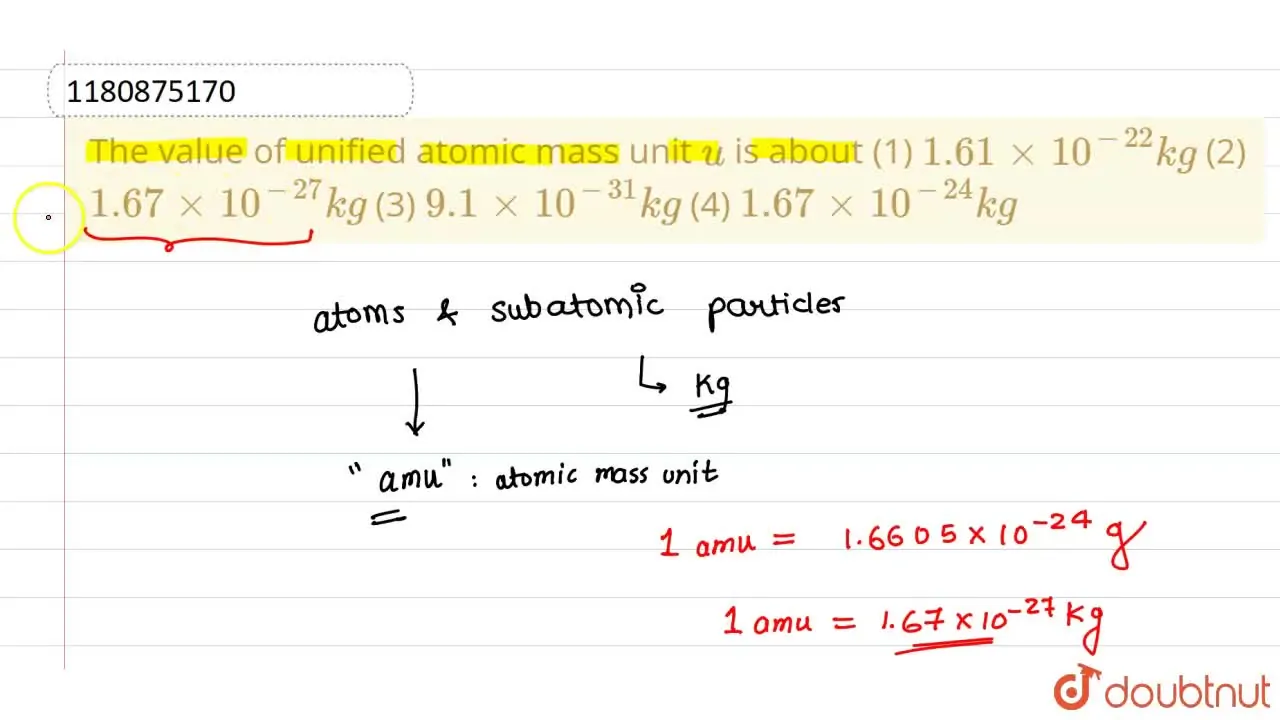 1180875170
The value of unified atomic mass unit u is about (1) 1.61 × 10⁻²² kg (2)
1.67 × 10⁻²⁷ kg (3) 9.1 × 10⁻³¹ kg (4) 1.67 × 10⁻²⁴ kg
atoms & subatomic particles
Kg
"amu" : atomic mass unit
1 amu = 1.6605 × 10⁻²⁴ g
1 amu = 1.67 × 10⁻²⁷ Kg
doubtnut